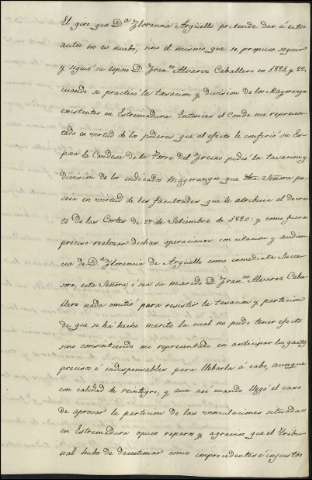 El giro que D.ª Florencia Argüelles pretende dar á estos
autos no es nuevo, sino el mismo que se propuso seguir
y siguió su esposo D. Fran.co Alvarez Caballero en 1821 y 22,
cuando se practicó la tasacion y division de los Mayorazgos
existentes en Estremadura. Entonces el Conde mi representado
en virtud de los poderes que al efecto le confirió su Esposa
la Condesa de la Torre del Fresno pidió la tasacion y
division de los indicados Mayorazgos que dha. Señora poseia
en virtud de las facultades que le atribuia el decreto
De las Cortes de 27 de Setiembre de 1820: y como fuera
preciso realizar dichas operaciones con citacion y audiencia
de D.ª Florencia de Argüelles como inmediata Sucesora,
esta Señora ó sea su marido D. Fran.co Alvarez Caballero
nada omitió para resistir la tasacion y particion
de que se há hecho merito la cual no pudo tener efecto
sino consintiendo mi representado en anticipar los gastos
precisos é indispensables para llebarla á cabo, aunque
con calidad de reintegro, y aun asi cuando llegó el caso
de aprovar la particion de las vinculaciones situadas
en Estremadura opuso reparos y agravios que el Tribunal
hubo de desestimar como improcedentes é injustos